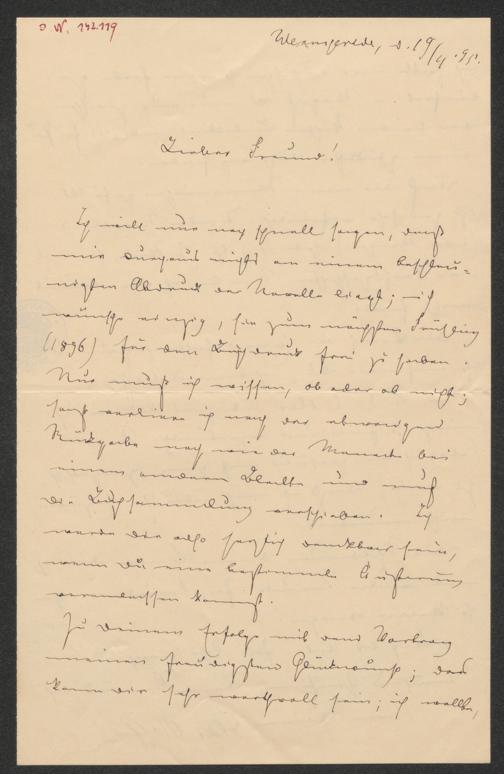 I. N. 142.119
Wernigerode, d. 19/4. 95.
Lieber Freund!
Ich will nur noch schnell sagen, daß
mir durchaus nichts an einem beschleu-
nigten Abdruck der Novelle liegt; ich
wünsche einzig, sie zum nächsten Frühling
(1896) für den Buchdruck frei zu haben.
Nur muß ich wissen, ob oder ob nicht;
sonst verliere ich nach der etwaigen
Rückgabe noch wieder Monate bei
einem anderen Blatte und muß
die Buchsammlung verschieben. Ich
werde dir also herzlich dankbar sein,
wenn Du eine bestimmte Äußerung
veranlassen kannst.
Zu Deinem Erfolge mit dem Vortrag
meinen freudigsten Glückwunsch; das
kann dir sehr werthvoll sein; ich wollte,